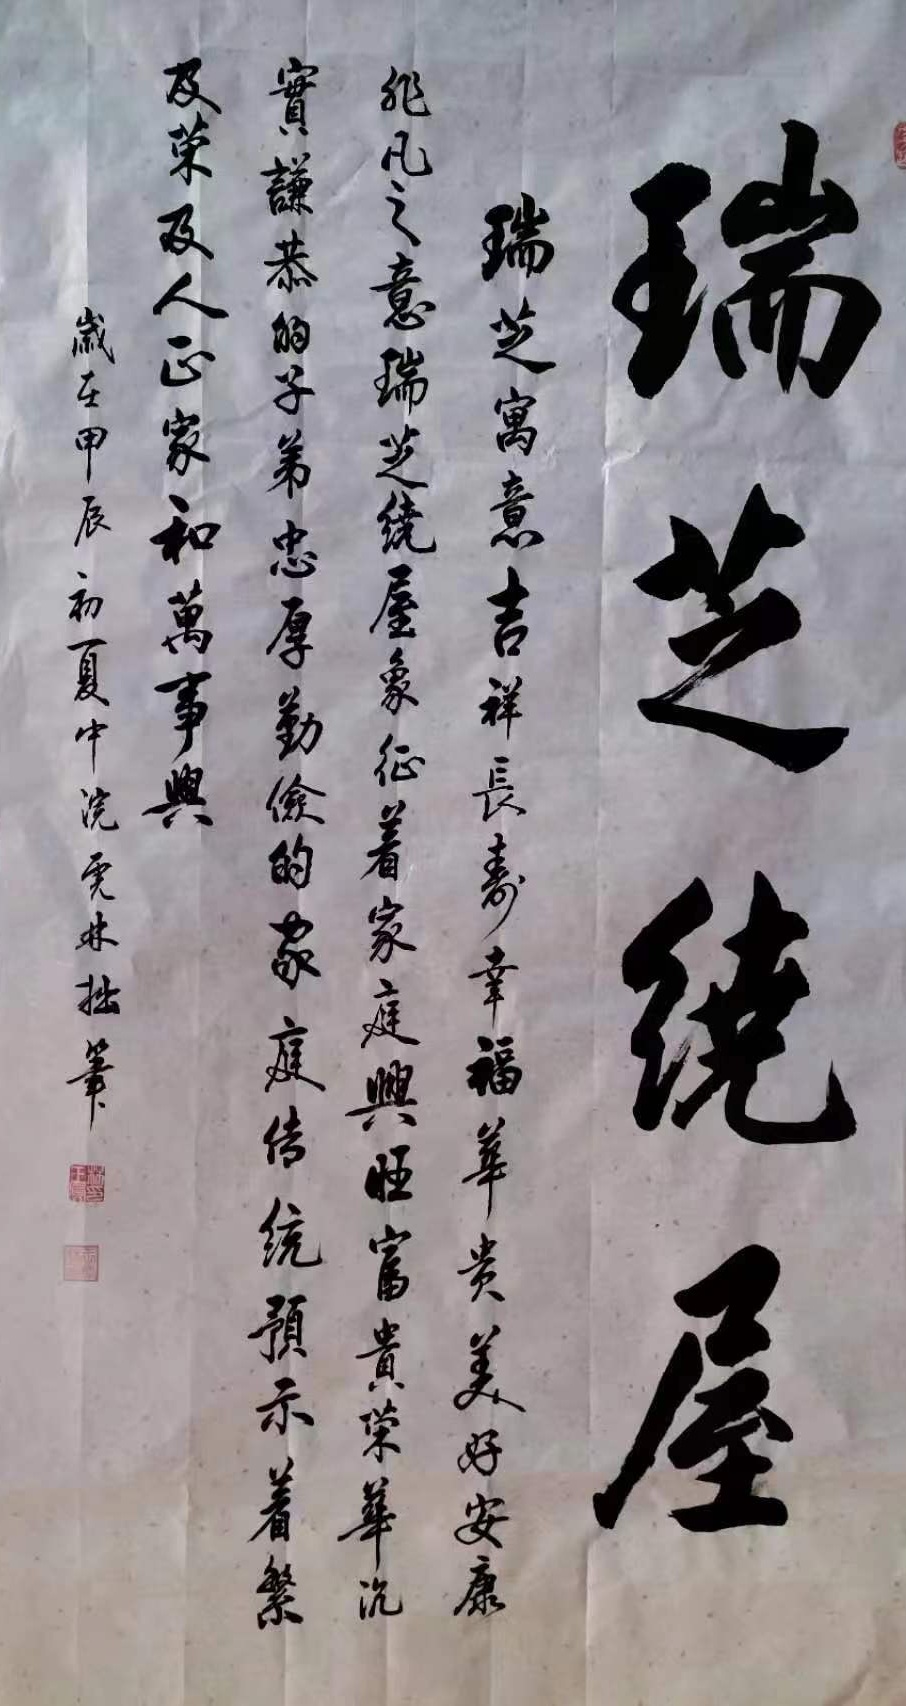 瑞芝繞屋
瑞芝寓意吉祥長壽幸福華贵美好安康
非凡之意瑞芝繞屋象征着家庭興旺富貴榮華沉
實謙恭的子弟忠厚勤儉的家庭传統預示着繁
及荣及人正家和萬事興
歲在甲辰初夏中浣雲林拙筆